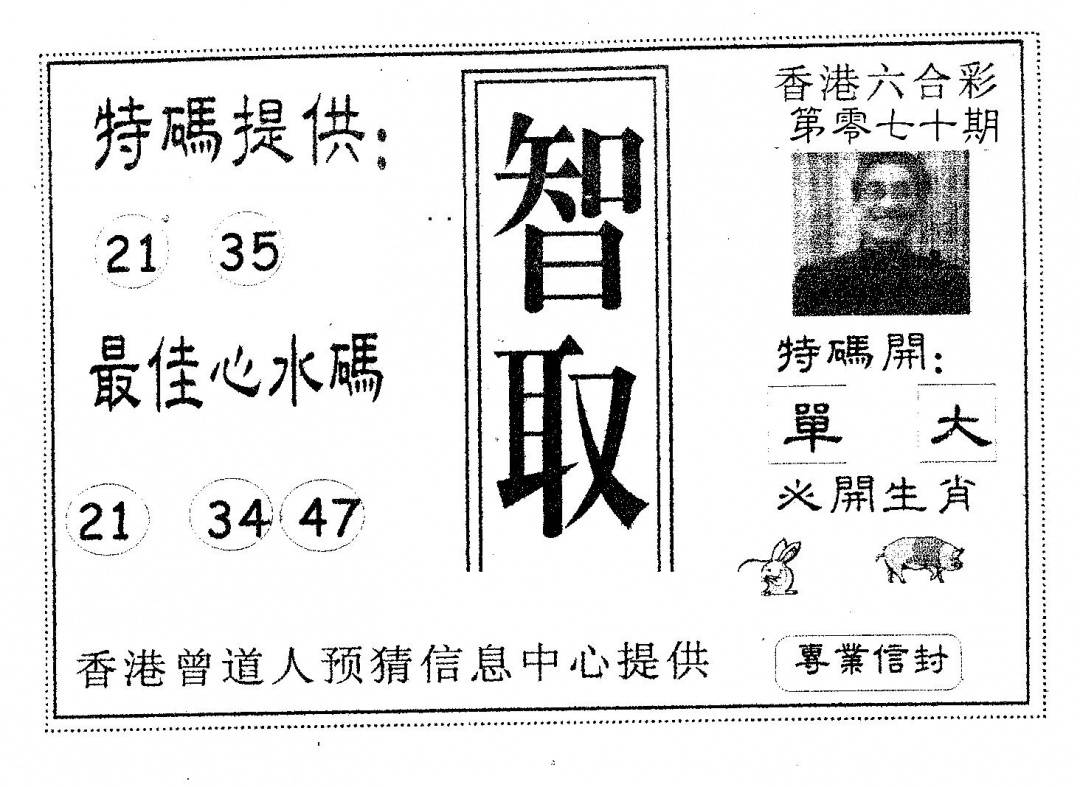 特碼提供:
21 35
最佳心水碼
21 34 47
智取
香港六合彩
第零七十期
特碼開:
單 大
必開生肖
香港曾道人预猜信息中心提供
專業信封